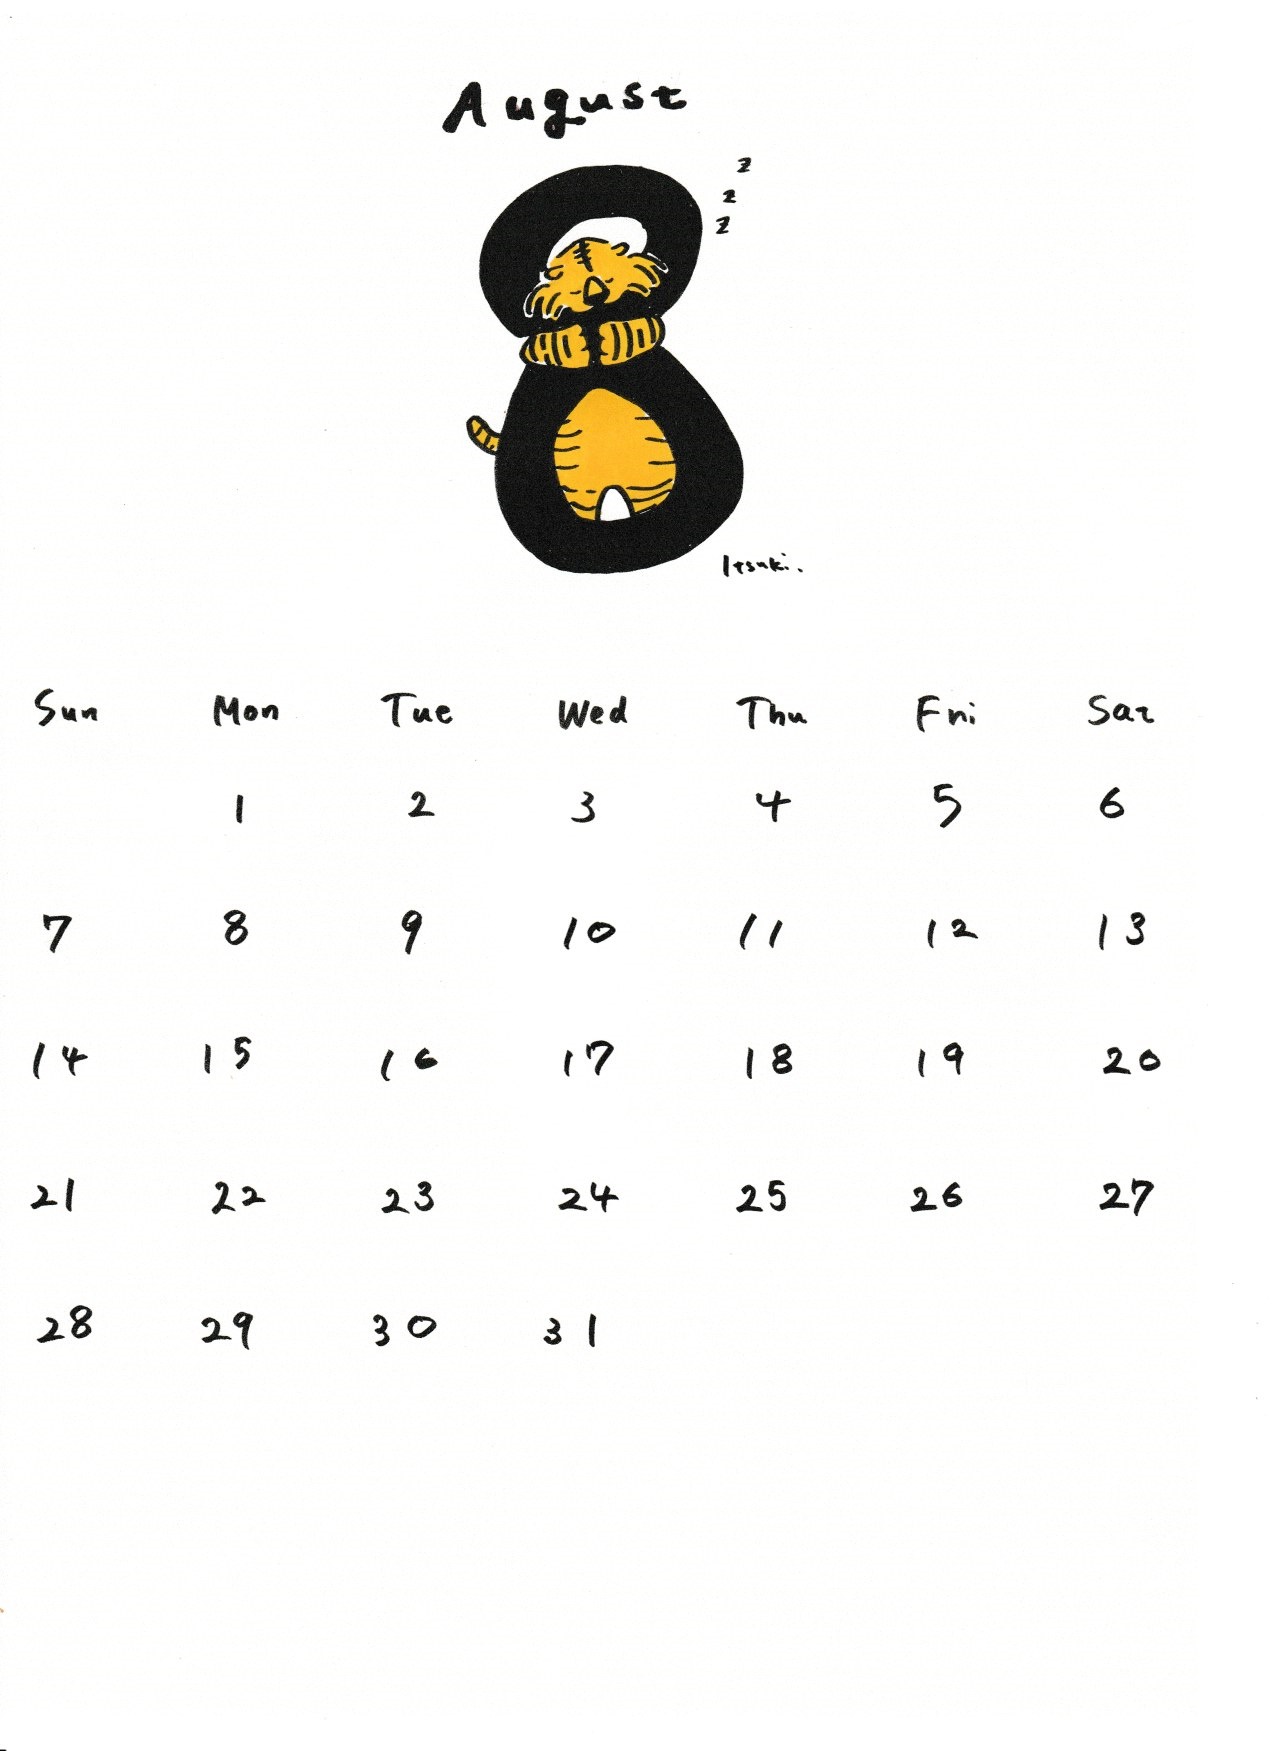 August
z
z
z
Itsuki.
Sun Mon Tue Wed Thu Fri Sat
1 2 3 4 5 6
7 8 9 10 11 12 13
14 15 16 17 18 19 20
21 22 23 24 25 26 27
28 29 30 31